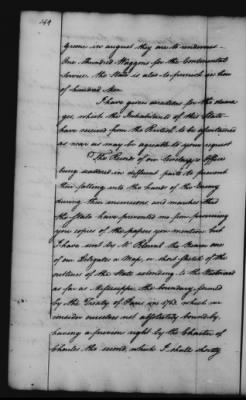 149
Greene in august they are to rendezvous
One Hundred Waggons for the Continental
Service, the State is also to furnish an Corn
of hundred Men
I have given directions for the dama
ges, which the Inhabitants of this State
have received from the British to be ascertained
as near as may be agreeable to your request
The Records of our Secretarys Office
being scattered in different parts to prevent
their falling into the hands of the Enemy
during their incursions, and marches thro'
the State have prevented me from furnishing
you copies of the papers you mention but
I have sent by Mr Blount the Bearer one
of our Delegates a Map, or short sketch of the
outlines of the State extending to the Westward
as far as Mississippi the boundary formed
by the Treaty of Paris in 1763. which we
consider ourselves not absolutely bound by,
having a previous right by the Charter of
Charles the second, which I shall shortly